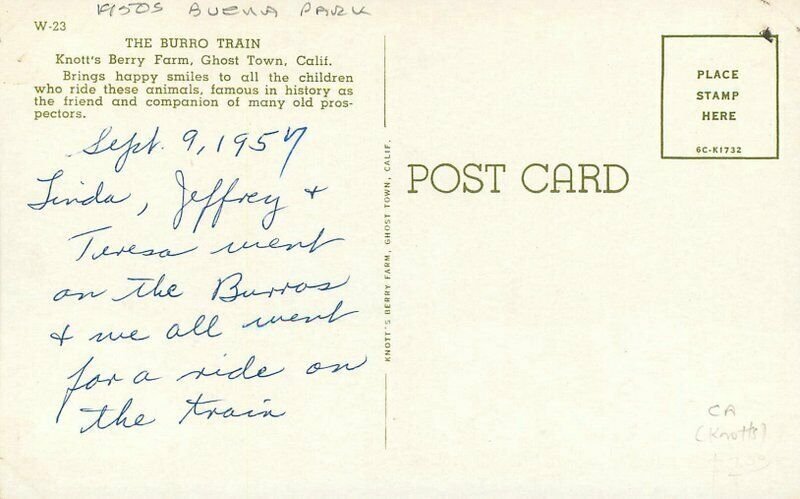 1950S BUENA PARK
W-23
THE BURRO TRAIN
Knott's Berry Farm, Ghost Town, Calif.
Brings happy smiles to all the children
who ride these animals, famous in history as
the friend and companion of many old pros-
pectors.
Sept. 9, 1957
Linda, Jeffrey +
Teresa went
on the Burros
+ we all went
for a ride on
the train
KNOTT'S BERRY FARM, GHOST TOWN, CALIF.
POST CARD
PLACE
STAMP
HERE
6C-K1732
CA
(Knotts)